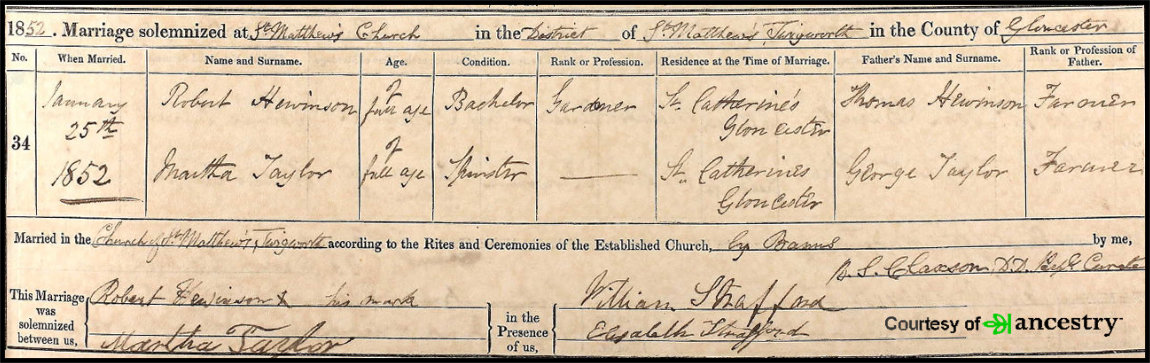 1852. Marriage solemnized at St Matthew's Church in the District of St Matthew's, Twigworth in the County of Gloucester
No. When Married. Name and Surname. Age. Condition. Rank or Profession. Residence at the Time of Marriage. Father's Name and Surname. Rank or Profession of Father.
34 January 25th 1852 Robert Hewinson of full age Bachelor Gardner St. Catherine's Gloucester Thomas Hewinson Farmer
Martha Taylor of full age Spinster — St. Catherine's Gloucester George Taylor Farmer
Married in the Church of St Matthew's, Twigworth according to the Rites and Ceremonies of the Established Church, by Banns by me,
B. S. Claxson, D.D. Curate
This Marriage was solemnized between us, Robert Hewinson X his mark
Martha Taylor
in the Presence of us, William Strafford
Elisabeth Strafford
Courtesy of ancestry